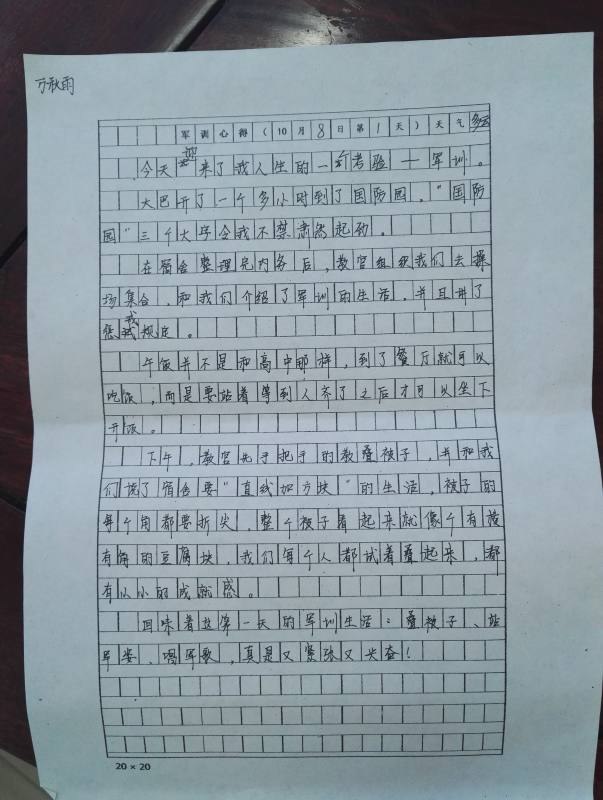 万秋雨
军训心得(10月8日第1天)天气多云
今天迎来了我人生的一个考验——军训。
大巴开了一个多小时到了国防园。"国防
园"三个大字令我不禁肃然起劲。
在宿舍整理完内务后,教官组织我们去操
场集合,和我们介绍了军训的生活,并且讲了
规定。
午饭并不是和高中那样,到了餐厅就可以
吃饭,而是要站着等到人齐了之后才可以坐下
开饭。
下午,教官先手把手的教叠被子,并和我
们说了宿舍要"直线加方块"的生活,被子的
每个角都要折尖,整个被子看起来就像个有棱
有角的豆腐块,我们每个人都试着叠起来,都
有小小的成就感。
回味着这第一天的军训生活:叠被子、站
军姿、唱军歌,真是又紧张又兴奋!
20×20